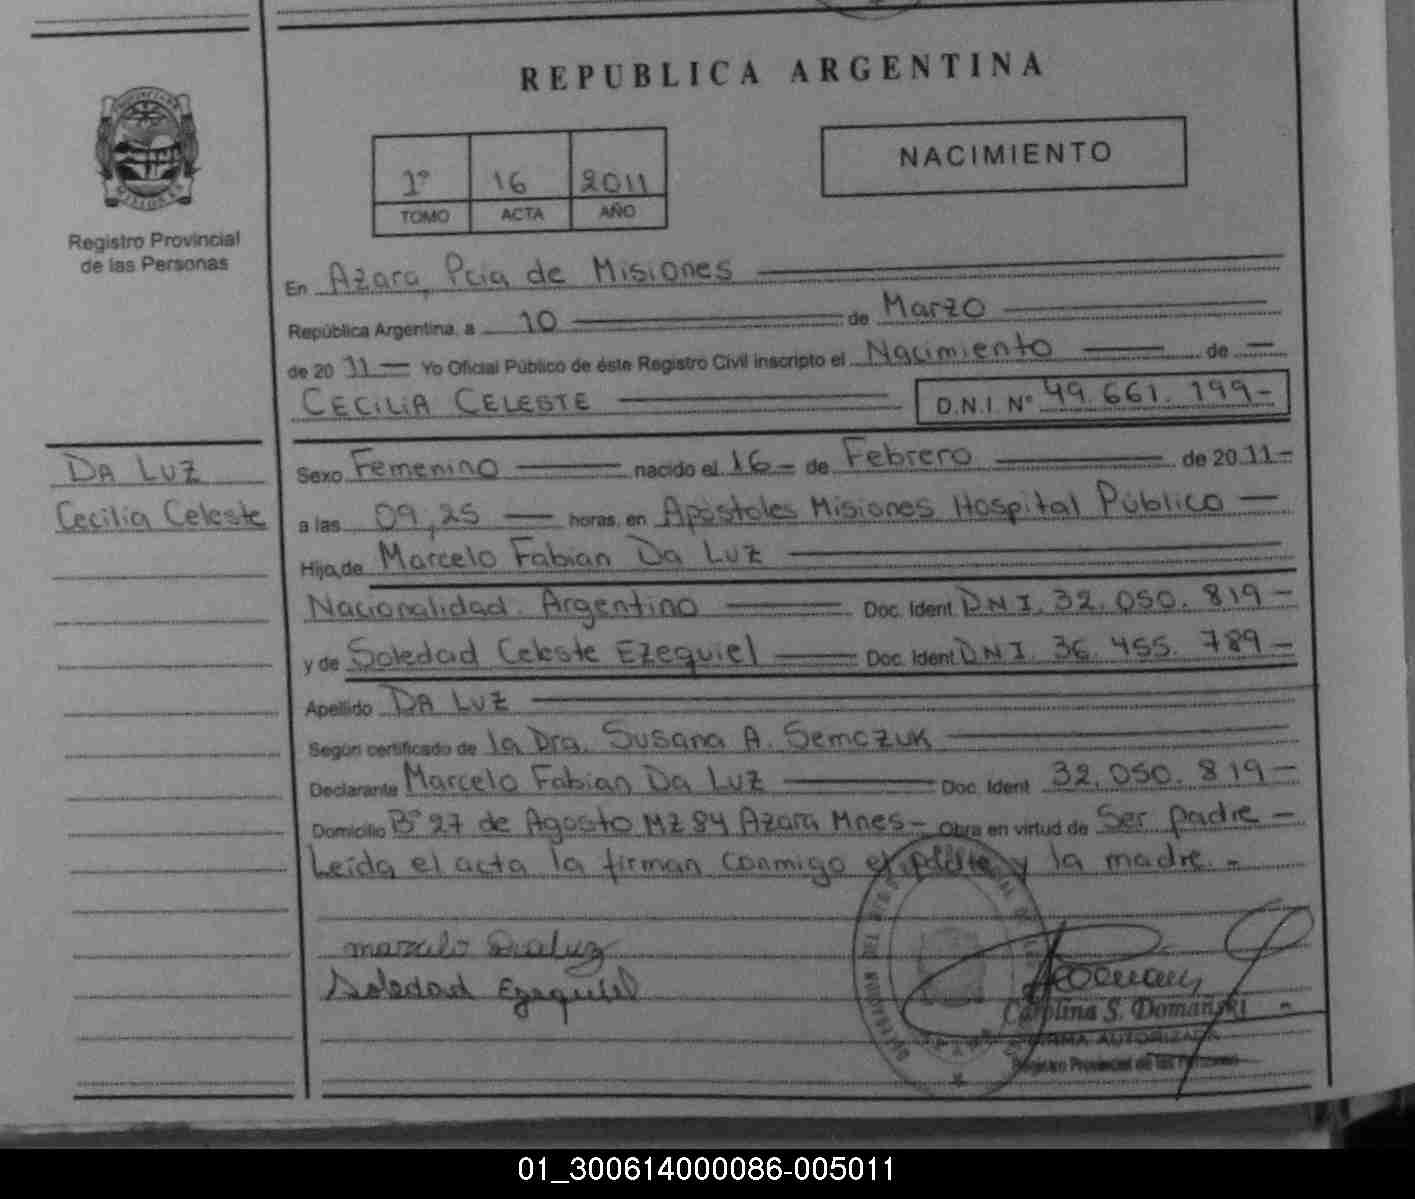 REPUBLICA ARGENTINA
NACIMIENTO
1° 16 2011
TOMO ACTA AÑO
Registro Provincial
de las Personas
En Azara, Pcia de Misiones
República Argentina, a 10 de Marzo
de 2011 Yo Oficial Público de éste Registro Civil inscripto el Nacimiento de
CECILIA CELESTE D.N.I. Nº 49.661.199-
DA LUZ
Cecilia Celeste
Sexo Femenino nacido el 16 de Febrero de 2011
a las 09,25 horas, en Apóstoles Misiones Hospital Público
Hija de Marcelo Fabian Da Luz
Nacionalidad Argentino Doc. Ident. D.N.I. 32.050.819-
y de Soledad Celeste Ezequiel Doc. Ident D.N.I. 36.455.789-
Apellido DA LUZ
Según certificado de la Dra. Susana A. Semczuk
Declarante Marcelo Fabian Da Luz Doc. Ident 32.050.819-
Domicilio Bº 27 de Agosto Mz 84 Azara Mnes- Obra en virtud de Ser padre-
Leída el acta la firman conmigo el padre y la madre.-
Marcelo Da luz
Soledad Ezequiel
Carolina S. Domański
FIRMA AUTORIZADA
Registro Provincial de las Personas
01_300614000086-005011